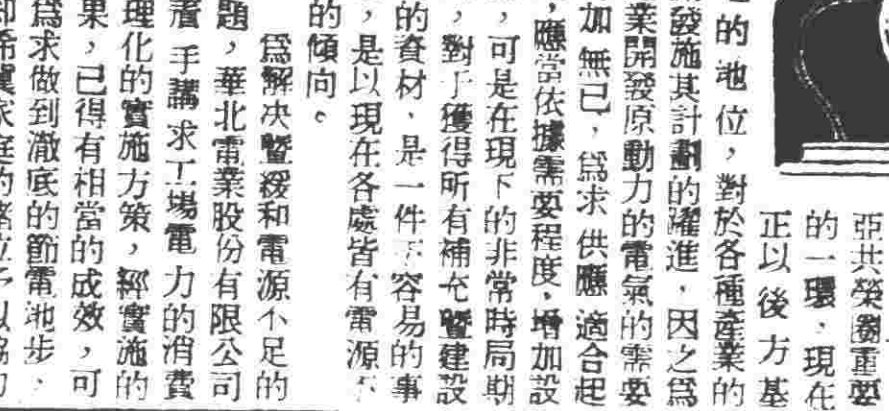 亞共榮圈重要
的一環，現在
正以後方基
的地位，對於各種產業的
發施其計劃的躍進，因之爲
業開發原動力的電氣的需要
加無已，爲求供應適合起
，應當依據需要程度，增加設
，可是在現下的非常時局期
，對于獲得所有補充暨建設
的資材，是一件不容易的事
，是以現在各處皆有電源不
的傾向。
爲解决暨緩和電源不足的
題，華北電業股份有限公司
着手講求工場電力的消費
理化的實施方策，經實施的
果，已得有相當的成效，可
爲求做到澈底的節電地步，
却希冀家庭的諸位予以協力